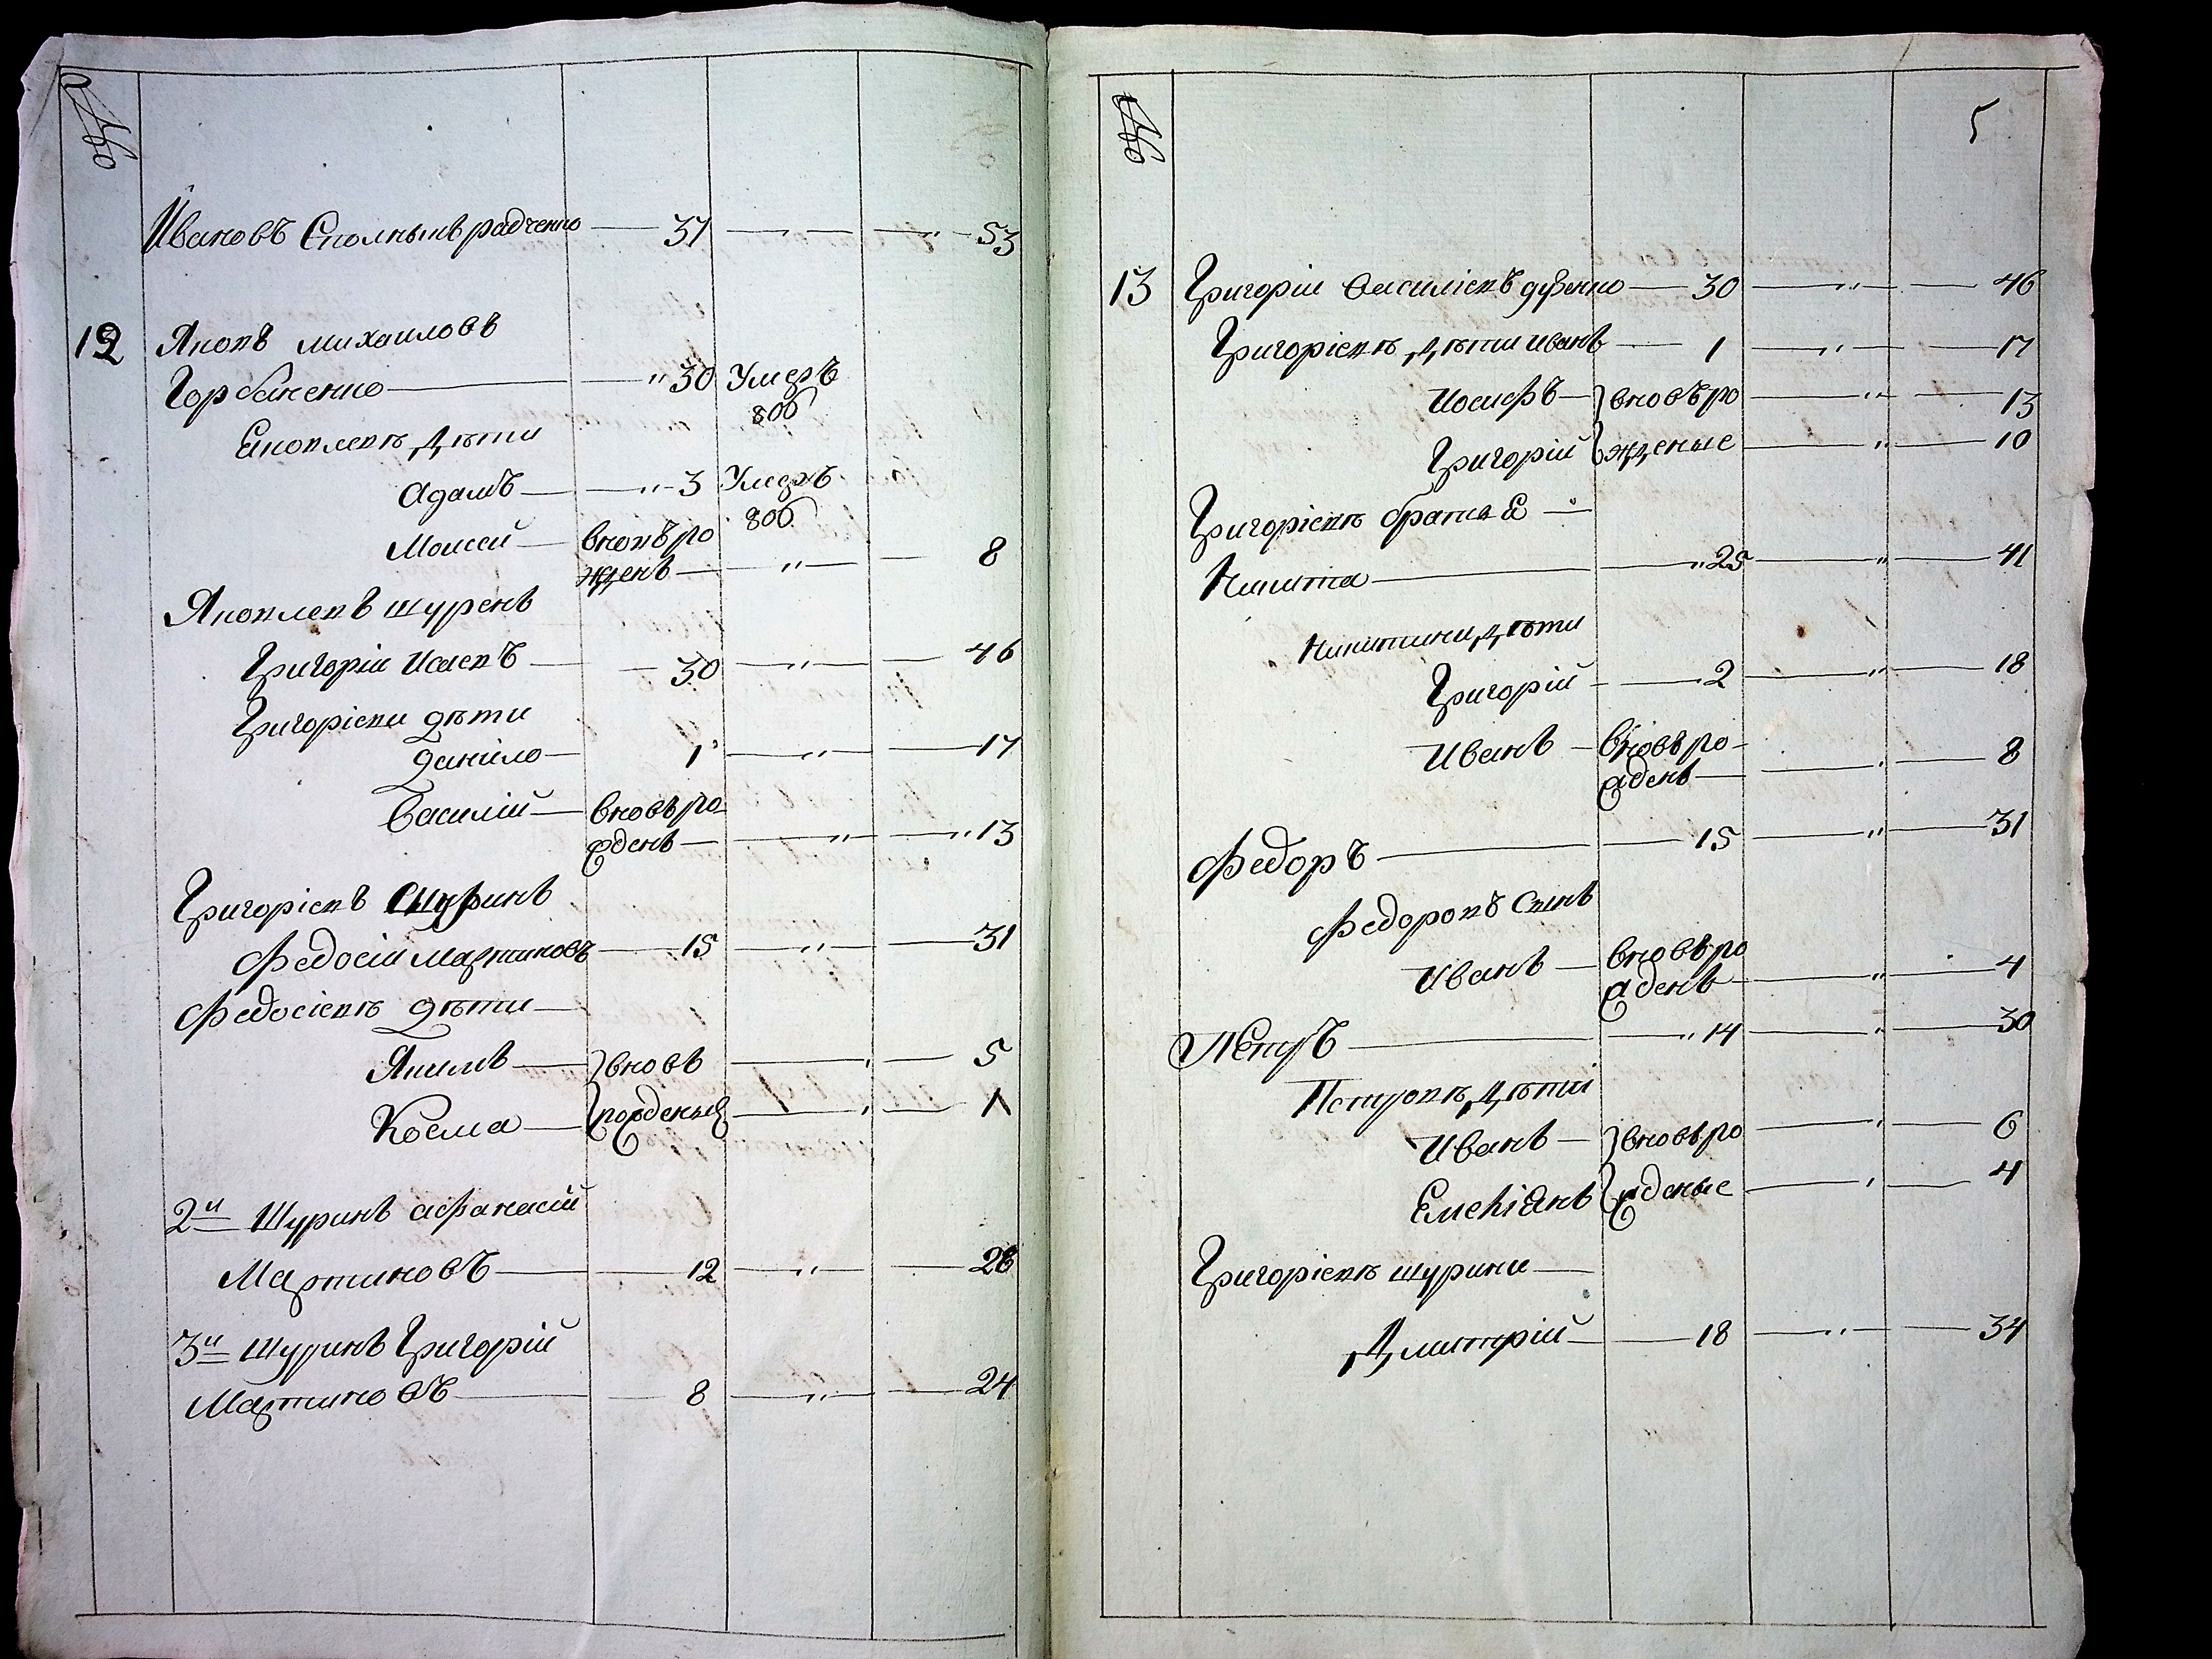 №
Ивановъ Сполнынъ радченко — 37 — „ — „ — 53
12 Яковъ михаиловъ
Горбаченко — „ 30 Умеръ
806
Яковлевъ дѣти
Адамъ — „ 3 Умеръ
806
Моисей — вновъ ро
жденъ — „ — 8
Яковлевъ шуренъ
Григорій Исаевъ — 30 — „ — 46
Григоріеви дѣти
Данило — 1 — „ — 17
Василій — вновъ ро
жденъ — „ — „ 13
Григоріевъ Шуринъ
Федосій Мартиновъ — 15 — „ — 31
Федосіевѣ дѣти —
Якимъ — вновъ — 5
Косма — рожденыя — 1
2й Шуринъ афанасій
Мартиновъ — 12 — „ — 28
3й Шуринъ Григорій
Мартиновъ — 8 — „ — 24
№ 5
13 Григорій Василіевъ дуенко — 30 — „ — 46
Григоріевѣ дѣти иванъ — 1 — „ — 17
Иосифъ — вновъ ро — „ — 13
Григорій жденые — „ — 10
Григоріевѣ братья Е —
Никита — „ 25 — „ — 41
Никитини дѣти
Григорій — 2 — „ — 18
Иванъ — вновъ ро-
жденъ — 8
Федоръ — 15 — „ — 31
Федоровъ Сынъ
Иванъ — вновъ ро
жденъ — „ — 4
Петръ — „ 14 — „ — 30
Петровѣ дѣти
Иванъ — вновъ ро — „ — 6
Емеліанъ жденые — 4
Григоріевѣ шурини —
Дмитрій — 18 — „ — 34